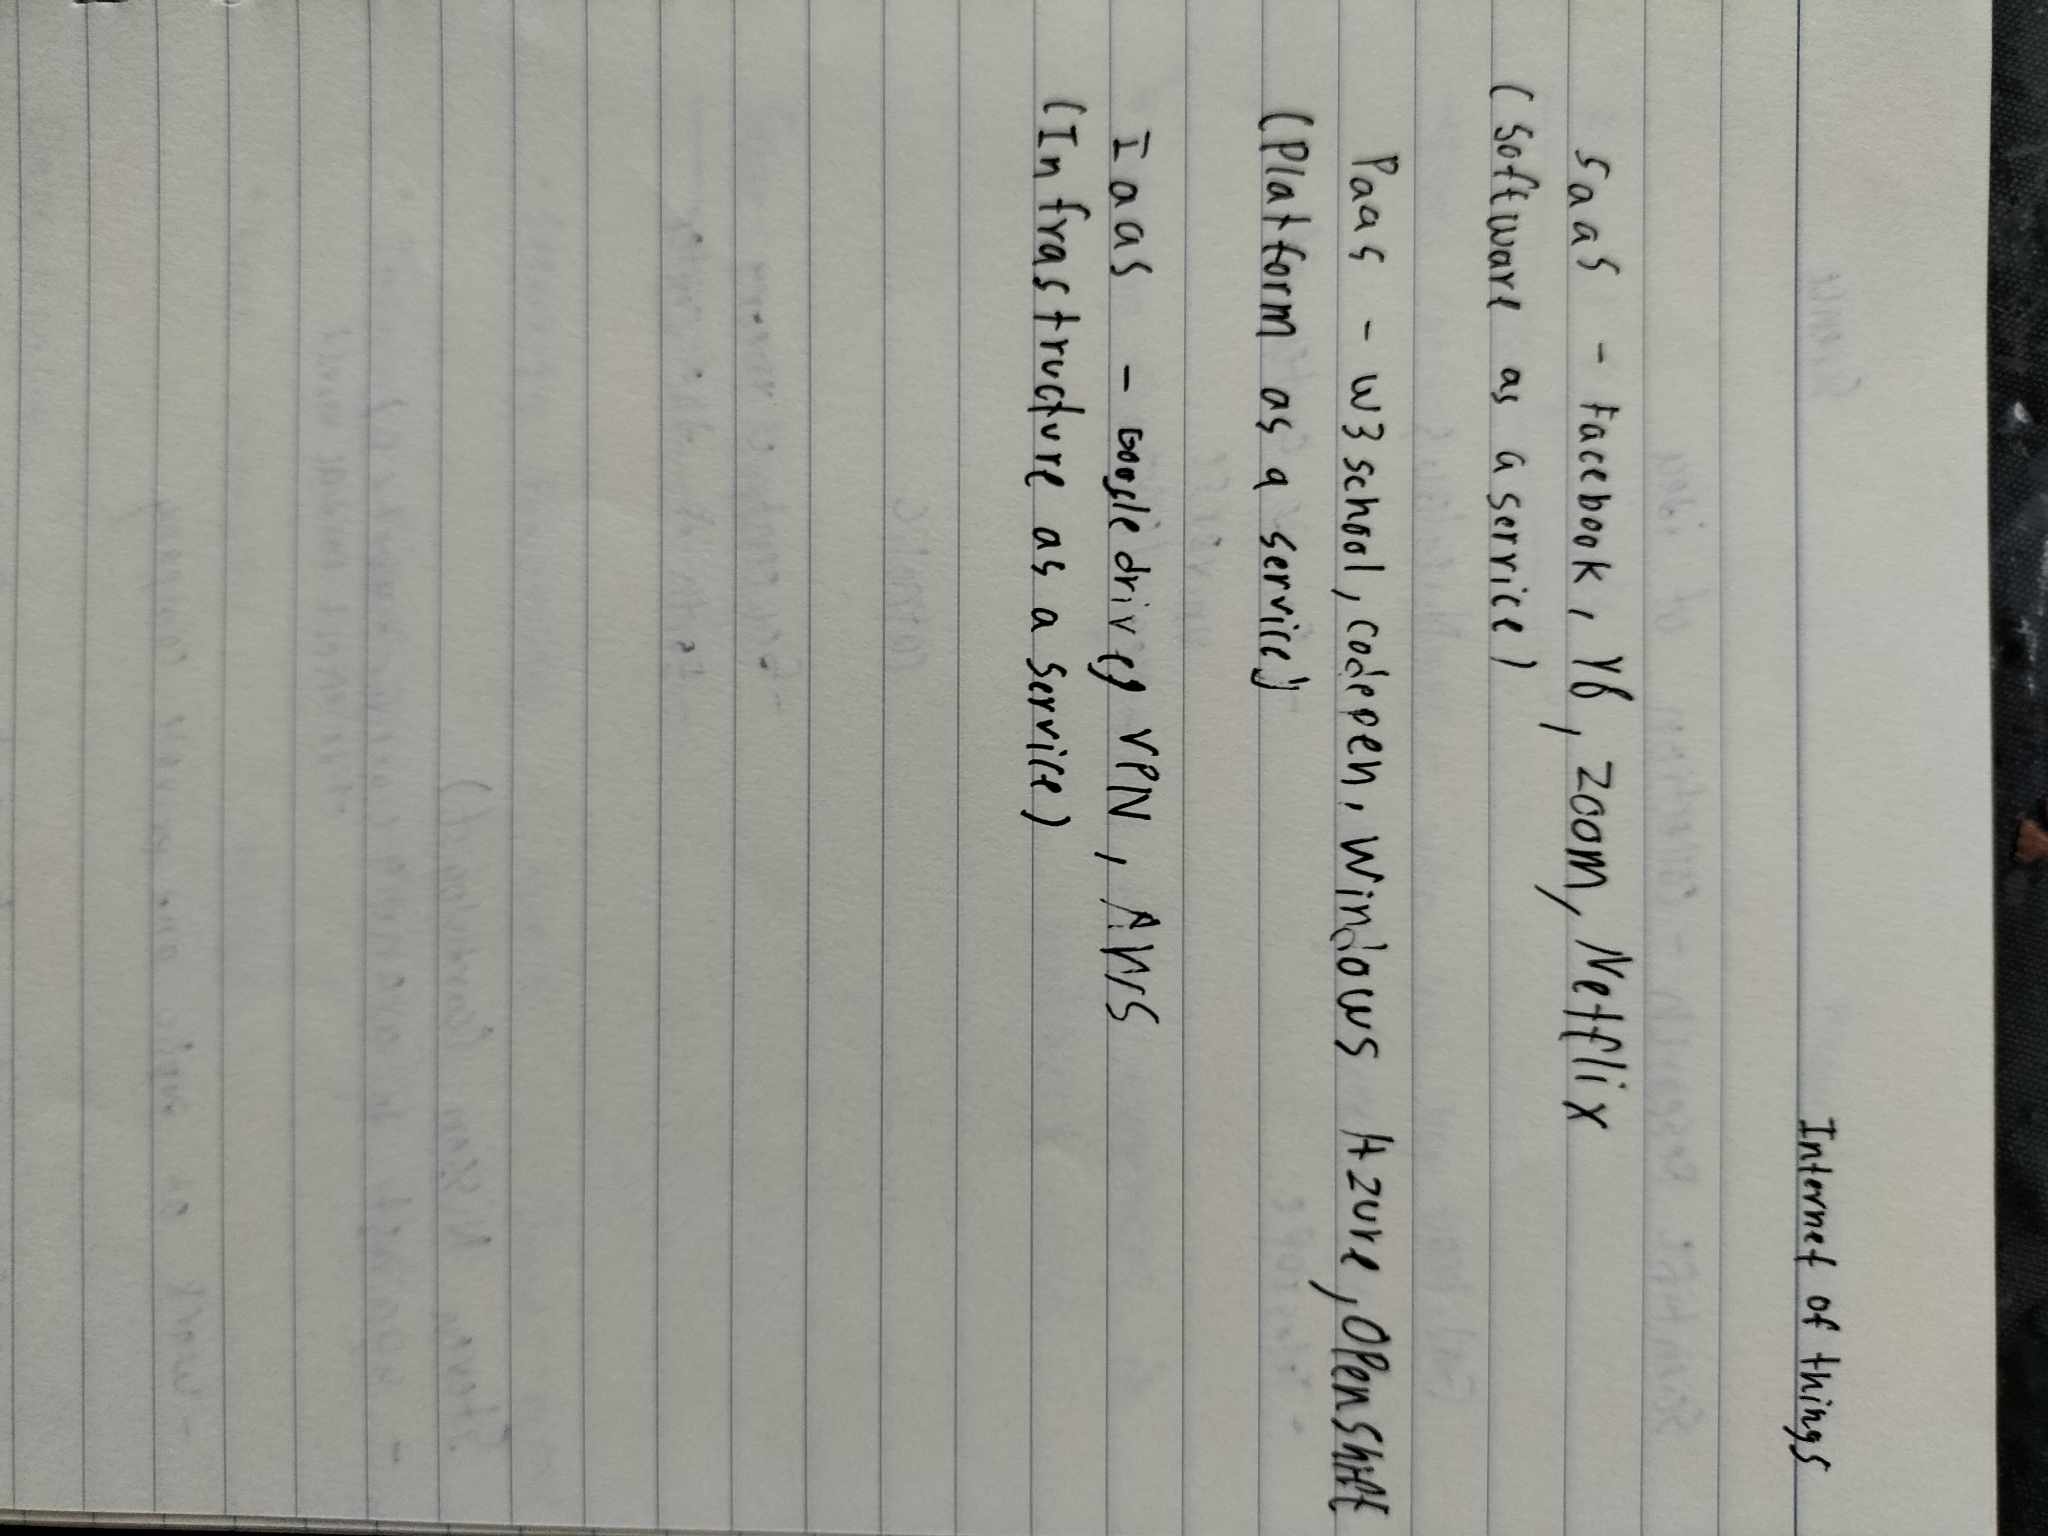 Internet of things
SaaS - Facebook, Y6, Zoom, Netflix
(Software as a service)
Paas - W3 school, codepen, Windows Azure, OpenShift
(Platform as a service)
Iaas - Google drive, VPN, AWS
(Infrastructure as a service)